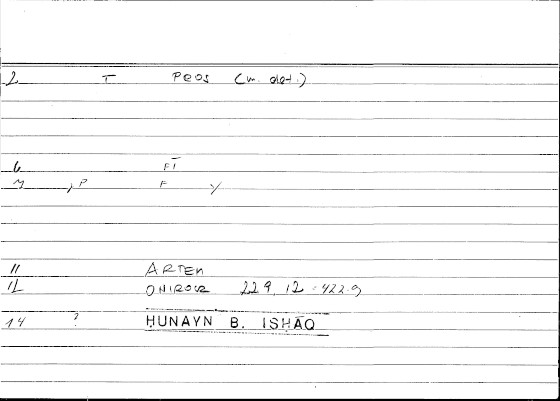 2 T PROS (m. dat.)
6 FT
M , P F y
11 ARTEM
12 ONIROCR 229, 12 - 422.9
14 ? ḤUNAYN B. ISḤĀQ